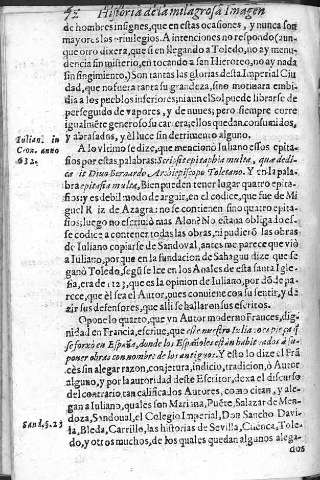 72 Historia de la milagrosa Imagen
de hombres insignes, que en estas ocasiones, y nunca son
mayores los privilegios. A intenciones no respondo (aun-
que otro dixera, que si en llegando a Toledo, no ay menu-
dencia sin misterio, en tocando a san Hieroteo, no ay nada
sin fingimiento,) Son tantas las glorias desta Imperial Ciu
dad, que no fuera tanta su grandeza, sino motivara embi-
dia a los pueblos inferiores; ni aun el Sol puede librarse de
perseguido de vapores, y de nuves; pero siempre corre
igual mête genero so su carrera; ellos quedan consumidos,
y abrasados, y èl luce sin detrimento alguno.
Iulian. in
Cron. anno
632.
A lo vltimo se dize, que mencionò Iuliano essos epita-
fios por estas palabras: Scripsit epitaphia multa, quæ dedi-
cavit Divo Bernardo Archiepiscopo Toletano. Y en la pala-
bra epitafia multa, Bien pueden tener lugar quatro epita-
fios; y es debil modo de arguir, en el codice, que fue de Mi
guel Ruiz de Azagra: no se contienen sino quatro epita-
fios; luego no escrivió mas Alonè No estava obligado es-
se codice a contener todas las obras, ni pudierô las obras
de Iuliano copiarse de Sandoval, antes me parece que viò
a Iuliano, por que en la fundacion de Sahagun dize que se
ganò Toledo, segû se lee en los Anales de esta santa Igle-
sia, era de 1123, que es la opinion de Iuliano, por dôde pa-
rece, que èl sea el Autor, pues conviene cõ a su sentir, y da
zir sus defensores, que alli se hallaron sus escritos.
Opone lo quarto, que vn Autor moderno Frances, dig-
nidad en Francia, escrive, que
sê forxò en España, donde los Españoles estân habituados a su-
poner obras con nombre de los antiguos. Y esto lo dize el Frã
cès sin alegar razon, conjetura, indicio, tradicion, ò Autor
alguno, y por la autoridad deste Escritor, dexa el discurso
del contrario, tan calificados Autores, como citan, y ale-
Sand. §. 23
gan a Iuliano, quales son Mariana, Puête, Salazar de Men-
doza, Sandoval, el Colegio Imperial, Don Sancho Davi-
la, Bleda, Carrillo, las historias de Sevilla, Cuenca, Tole-
do, y otros muchos, de los quales quedan algunos alega-
dos